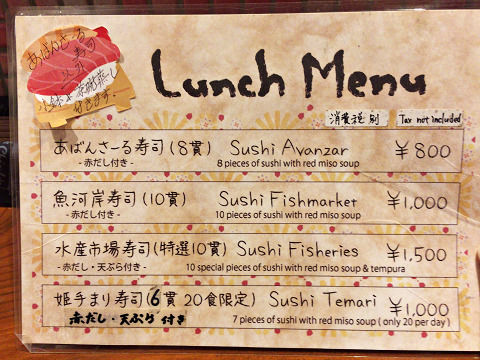 あばんさーる寿司
小鉢と茶碗蒸し
付きます。
Lunch Menu
消費税別 Tax not included
あばんさーる寿司(8貫) Sushi Avanzar ¥800
- 赤だし付き - 8 pieces of sushi with red miso soup
魚河岸寿司(10貫) Sushi Fishmarket ¥1,000
- 赤だし付き - 10 pieces of sushi with red miso soup
水産市場寿司(特選10貫) Sushi Fisheries ¥1,500
- 赤だし・天ぷら付き - 10 special pieces of sushi with red miso soup & tempura
姫手まり寿司(6貫 20食限定) Sushi Temari ¥1,000
赤だし・天ぷら 付き 7 pieces of sushi with red miso soup ( only 20 per day )